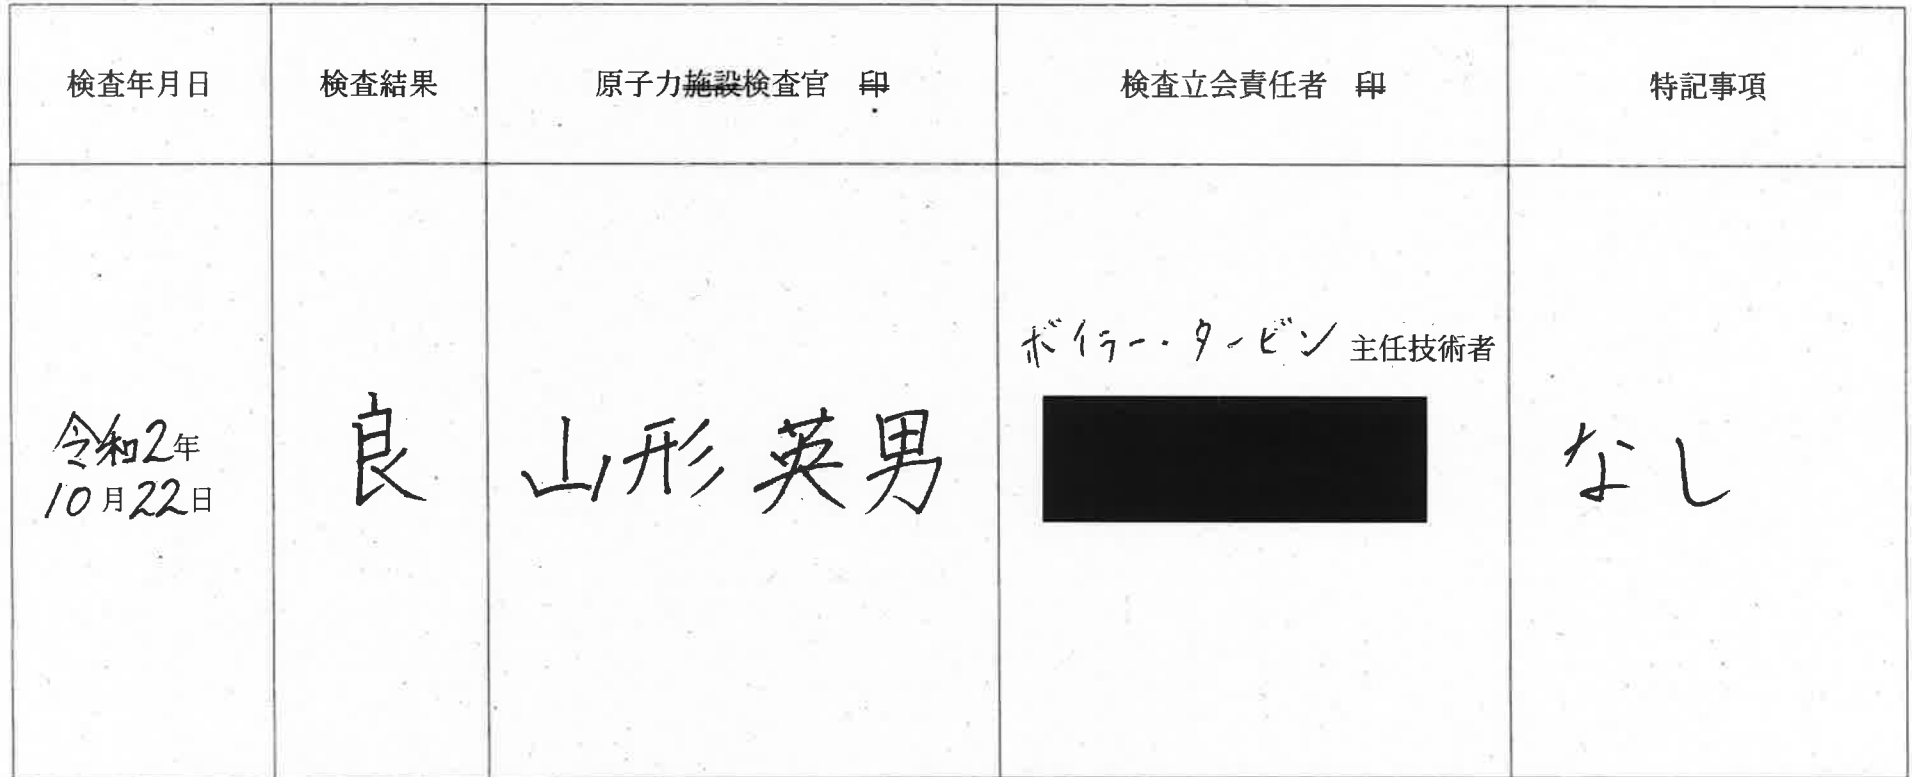 検査年月日
検査結果
原子力施設検査官 印
検査立会責任者 印
特記事項
令和2年
10月22日
良
山形 英男
ボイラー・タービン 主任技術者
なし